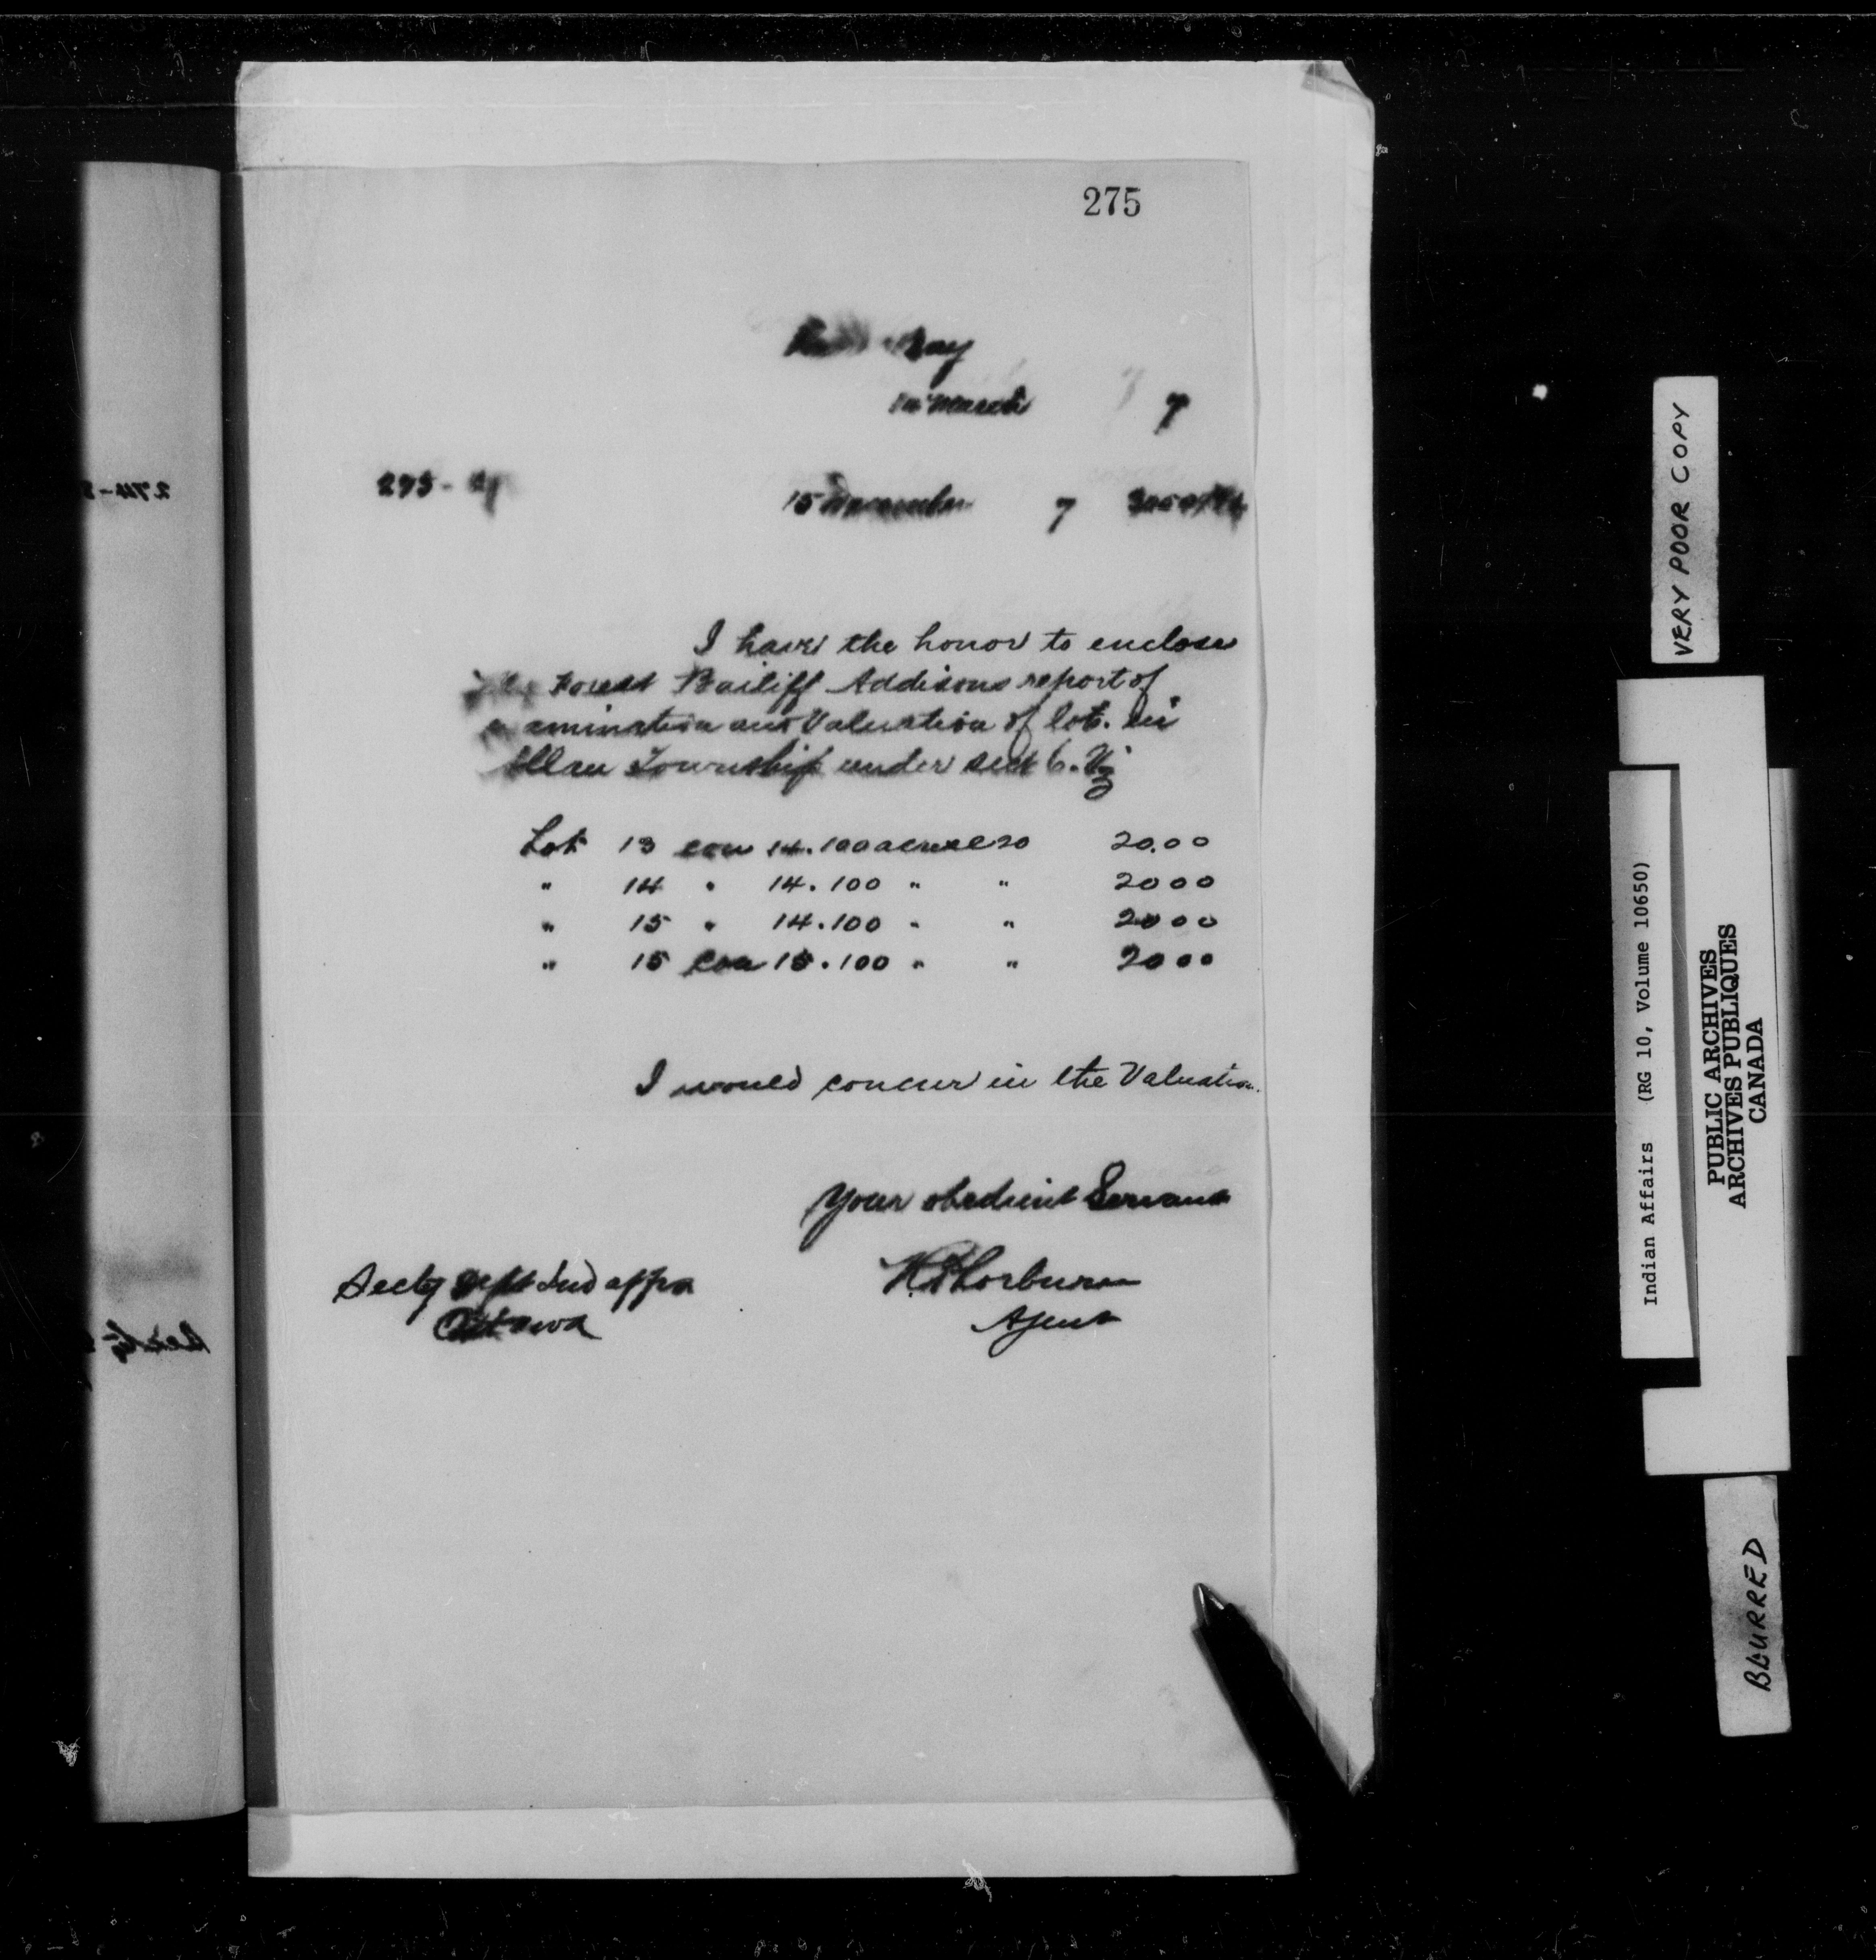 275
Bay
March 7
15 7
I have the honor to enclose
Forest Bailiff Addisons report of
amination and Valuation of lots in
Allan Township under sect 6. Viz
Lot 13 con 14. 100 acres @ 20 20.00
" 14 " 14. 100 " " 2000
" 15 " 14. 100 " " 2000
" 15 con 15. 100 " " 2000
I would concur in the Valuation.
Your obedient Servant
Thorburn
Agent
Secty Dept Ind affrs
Ottawa
VERY POOR COPY
Indian Affairs (RG 10, Volume 10650)
PUBLIC ARCHIVES
ARCHIVES PUBLIQUES
CANADA
BLURRED